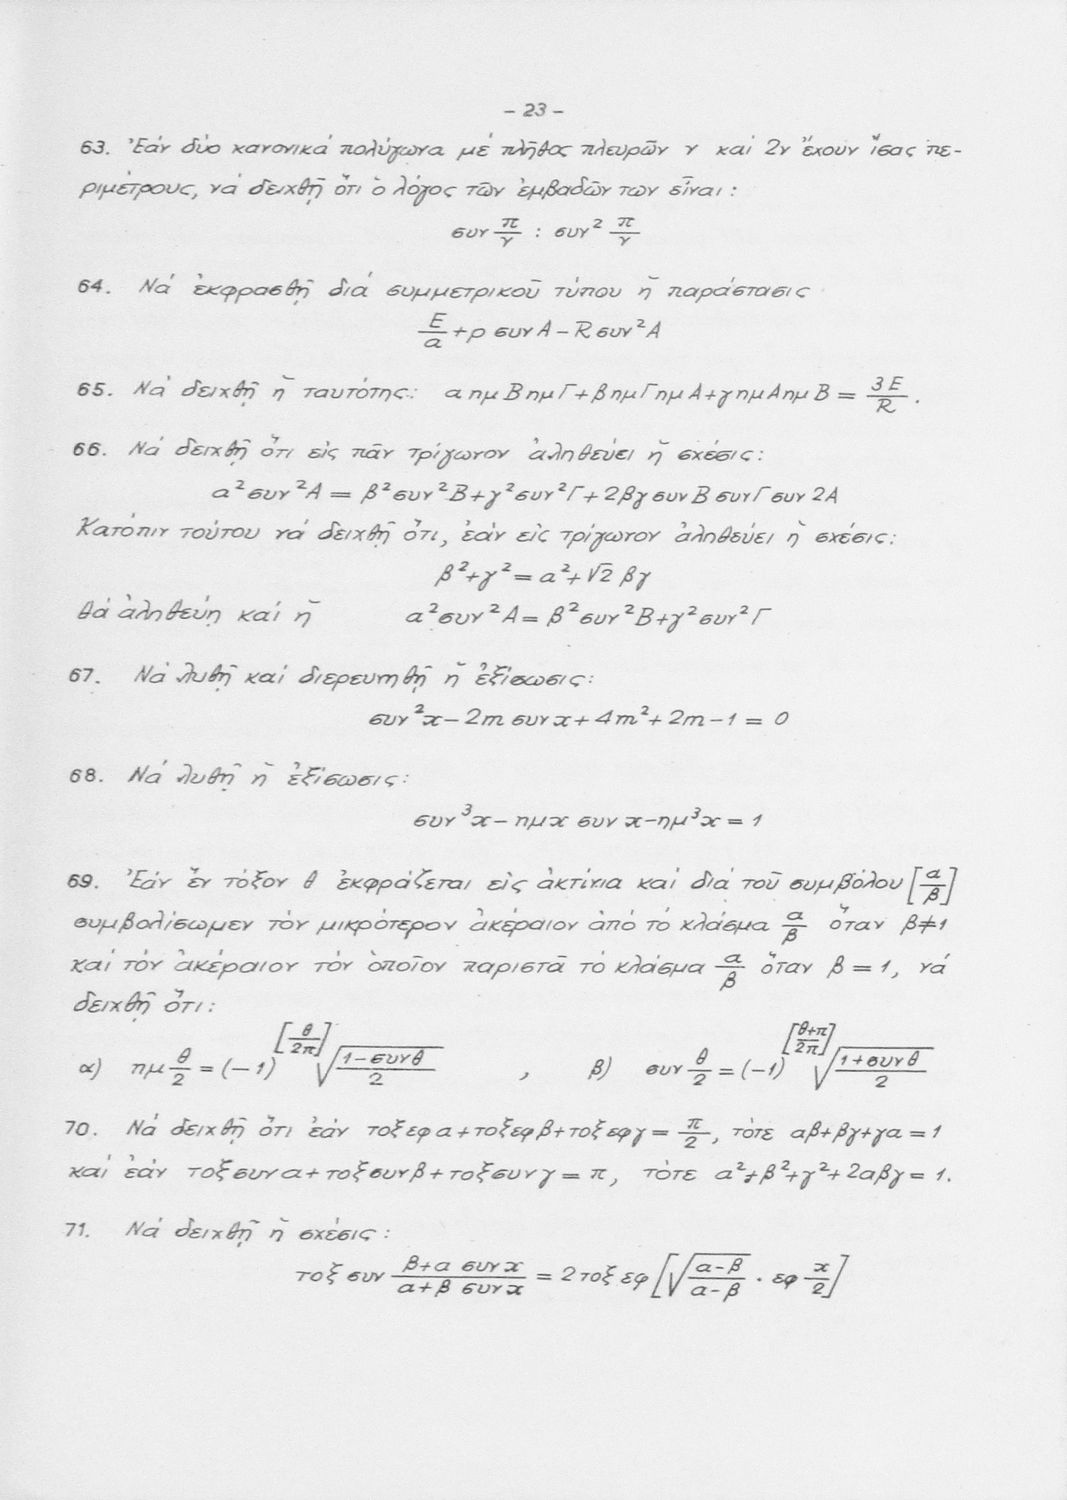 - 23 -
63. Ἐάν δύο κανονικά πολύγωνα μέ πλῆθος πλευρῶν ν καί 2ν ἔχουν ἴσας πε-
ριμέτρους, νά δειχθῇ ὅτι ὁ λόγος τῶν ἐμβαδῶν των εἶναι :
συν π/ν : συν² π/ν
64. Νά ἐκφρασθῇ διά συμμετρικοῦ τύπου ἡ παράστασις
Ε/α + ρ συν Α - R συν² Α
65. Νά δειχθῇ ἡ ταυτότης: α ημ Β ημ Γ + β ημ Γ ημ Α + γ ημ Α ημ Β = 3Ε/R .
66. Νά δειχθῇ ὅτι εἰς πᾶν τρίγωνον ἀληθεύει ἡ σχέσις:
α² συν² Α = β² συν² Β + γ² συν² Γ + 2βγ συν Β συν Γ συν 2Α
Κατόπιν τούτου νά δειχθῇ ὅτι, ἐάν εἰς τρίγωνον ἀληθεύει ἡ σχέσις:
β² + γ² = α² + √2 βγ
θά ἀληθεύῃ καί ἡ α² συν² Α = β² συν² Β + γ² συν² Γ
67. Νά λυθῇ καί διερευνηθῇ ἡ ἐξίσωσις:
συν² x - 2m συν x + 4m² + 2m - 1 = 0
68. Νά λυθῇ ἡ ἐξίσωσις:
συν³ x - ημ x συν x - ημ³ x = 1
69. Ἐάν ἕν τόξον θ ἐκφράζεται εἰς ἀκτίνια καί διά τοῦ συμβόλου [α/β]
συμβολίσωμεν τόν μικρότερον ἀκέραιον ἀπό τό κλάσμα α/β ὅταν β≠1
καί τόν ἀκέραιον τόν ὁποῖον παριστᾶ τό κλάσμα α/β ὅταν β = 1, νά
δειχθῇ ὅτι:
α) ημ θ/2 = (-1)^[θ/2π] √((1-συν θ)/2) , β) συν θ/2 = (-1)^[(θ+π)/2π] √((1+συν θ)/2)
70. Νά δειχθῇ ὅτι ἐάν τοξ εφ α + τοξ εφ β + τοξ εφ γ = π/2, τότε αβ+βγ+γα = 1
καί ἐάν τοξ συν α + τοξ συν β + τοξ συν γ = π, τότε α²+β²+γ²+2αβγ = 1.
71. Νά δειχθῇ ἡ σχέσις :
τοξ συν (β+α συν x)/(α+β συν x) = 2 τοξ εφ [√((α-β)/(α-β)) · εφ x/2]